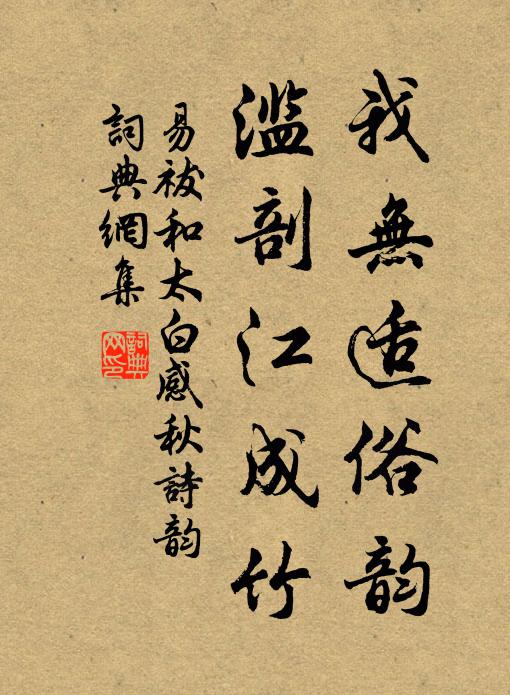 我無适俗韵
滥剖江成竹
易祓和太白感秋詩韵
詞典網集
詞典网印